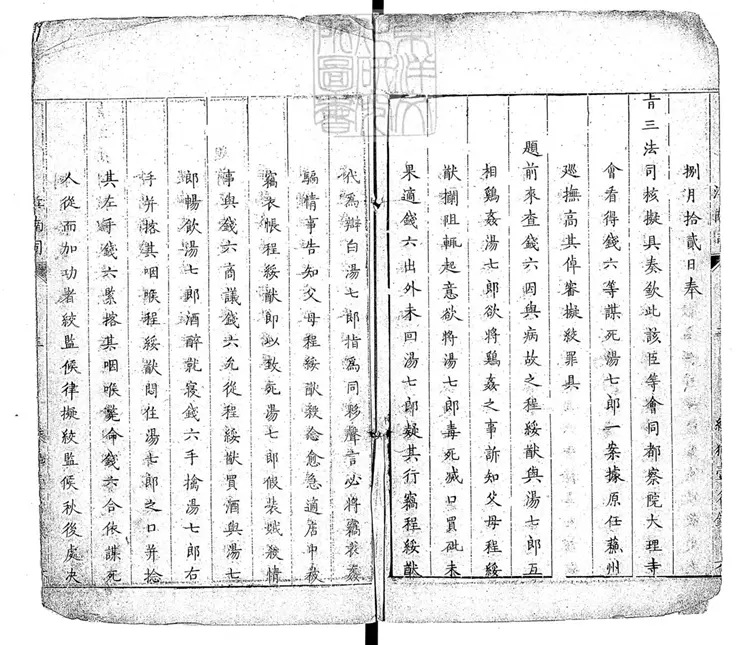 捌月拾貳日奉
旨三法司核擬具奏欽此該臣等會同都察院大理寺
會看得錢六等謀死湯七郎一案據原任蘇州
巡撫高其倬審擬絞罪具
題前來查錢六因與病故之程綏猷與湯七郎互
相鷄姦湯七郎欲將鷄姦之事訴知父母程綏
猷攔阻輒起意欲將湯七郎毒死滅口買砒未
果適錢六出外未回湯七郎疑其行竊程綏猷
代為辯白湯七郎指為同夥聲言必將竊衣姦
騙情事告知父母程綏猷殺念愈急適店中被
竊衣帳程綏猷即以致死湯七郎假裝賊殺情
事與錢六商議錢六允從程綏猷買酒與湯七
郎暢飲湯七郎酒醉就寢錢六手擒湯七郎右
手并搭其咽喉程綏猷悶住湯七郎之口并捻
其左手錢六緊搭其咽喉斃命錢六合依謀死
人從而加功者絞監候律擬絞監候秋後處决